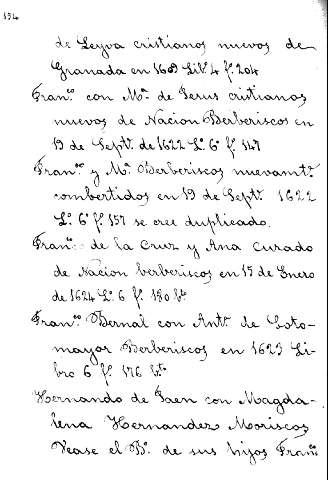 154
de Leyva cristianos nuevos de
Granada en 1609 Lib.º 4 f.º 204
Fran.co con M.ª de Jesus cristianos
nuevos de Nacion Berberiscos en
19 de Sept.e de 1622 L.º 6º f.º 147
Fran.co y M.ª Berberiscos nuevamte
combertidos en 19 de Sept.e 1622
L.º 6º f.º 157 se cree duplicado.
Fran.co de la Cruz y Ana Curado
de Nacion berberiscos en 15 de Enero
de 1624 L.º 6 f.º 180 bto
Fran.co Bernal con Ant.ª de Soto-
mayor Berberiscos en 1623 Li-
bro 6 f.º 176 bto
Hernando de Jaen con Magda-
lena Hernandez Moriscos
Vease el B.º de sus hijos Fran.co